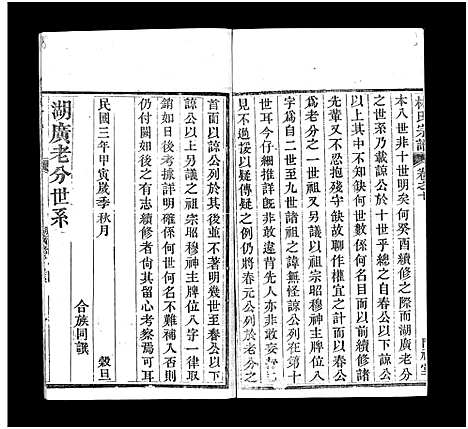 林氏宗譜 卷之十
本八世非十世明矣何癸酉續修之際而湖廣老分
之世系乃載諒公於十世乎總之自春公以下諒公
以上其中不知缺何世數係何何名目而以前續修諸
先輩又不忍抱殘守缺故聊作權宜之計而以春公
爲老分之一世祖又另議以祖宗昭穆神主牌位八
字爲自二世至九世諸祖之諱無怪諒公列在第十
世耳今仔細推詳旣非敢違背先人亦非敢妄
不過援以疑傳疑之例仍將春元公列於老分之
首而以諒公列於其後並不著明幾世至春公以下
諒公以上另議之祖宗昭穆神主牌位八字一律取
銷如日後考據詳明確係何世何名不難補入否則
仍付闕如後之有志續修者尙其留心考察焉可耳
民國三年甲寅歲季秋月 穀旦
合族同譔
湖廣老分世系